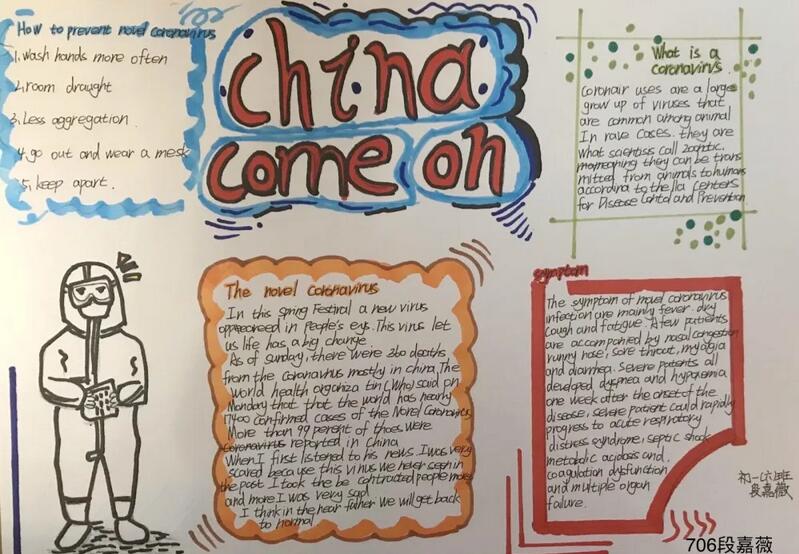 How to prevent novel coronavirus
1. wash hands more often
2. room draught
3. Less aggregation.
4. go out and wear a mesk
5. keep apart.
china
come on
What is a
coronavirus.
Coronair uses are a large
grow up of viruses that
are common among animal
In rave cases. they are
what scientiss call zoontic.
they can be trans
mitted from animals to humans
according to the
for Disease and Prevention
The novel coronavirus
In this spring Festival a new virus
appeareed in people's eys. This virus let
us life has a big change.
As of sunday, there were 360 deaths
from the coronavirus mostly in china, The
world health organiza tin (Who) said on
Monday that that the world has nearly
17400 confirmed cases of the Novel Coronavirus
More than 99 percent of thoes were
coronavirus reported in China
When I first listened to his news. I was very
scared because this virus we never seen in
the post. I took the be contracted people more
and more I was very sad
I think in the near futher we will get back
to normal
symptom
The symptom of novel coronavirus
infection are mainly fever. dry
cough and fatigue. A few patients
are accompanied by nasal congestion
runny nose, sore throat, myalgia
and diarrhea. Severe patients all
developed dyspnea and hypoxemia
one week after the onset of the
disease, severe patient could rapidly
progress to acute respiratory
distress syndrome, septic shock
metabolic acidoss and.
coagulation dysfunction
and multiple organ
failure.
初一六班
段嘉薇
706段嘉薇